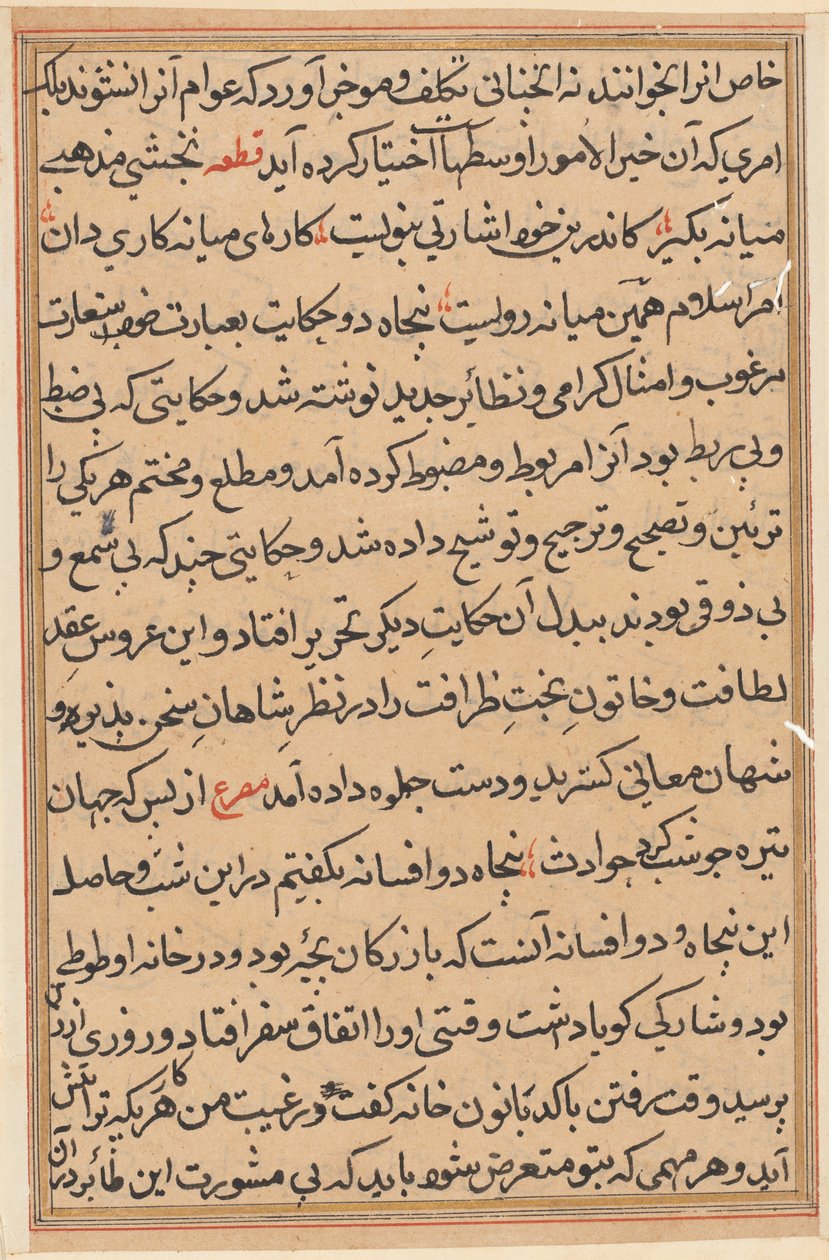 خاص انرا بخوانند نه بجنانی تکلف و موخر آورد که عوام آنرا نشنوند بلکه
امری که آن خیر الامور اوسطهاست اختیار کرده آید قطعه نخشبی مذهبی
میانه بکیر کاندرین خوه اشارتی بنویست کارهای میانه کاری دان
امر اسلام همین میانه رویست پنجاه دو حکایت بعبارت خوب ستعارت
مرغوب و امثال کرامی و نظائر جدید نوشته شد و حکایتی که بی ضبط
و بی ربط بود آنرا مربوط و مضبوط کرده آمد و مطلع و مختم هر یکی را
تزئین و تصحیح و ترجیح و توشیح داده شد و حکایتی چند که بی سمع و
بی ذوقی بودند ببدل آن حکایتِ دیکر تحریر افتاد و این عروسِ عقدِ
لطافت و خاتونِ تختِ ظرافت را در نظرِ شاهانِ سخن پذیر و
شهان معانی کستر ید و دست جلوه داده آمد مصرع از بس که جهان
تیره جو شب کرد حوادث پنجاه دو افسانه بکفتیم در این شب و حاصل
این پنجاه و دو افسانه آنست که بازرکان بچهٔ بود و در خانه او طوطی
بود و شارکی کویا داشت وقتی او را اتفاق سفر افتاد و روزی از زن
پرسید وقت رفتن با کدبانون خانه کفت و رغیبت من هر کاریکه ترا پیش
آید و هر مهمی که بتو متعرض شوه باید که بی مشورت این طائر در آن